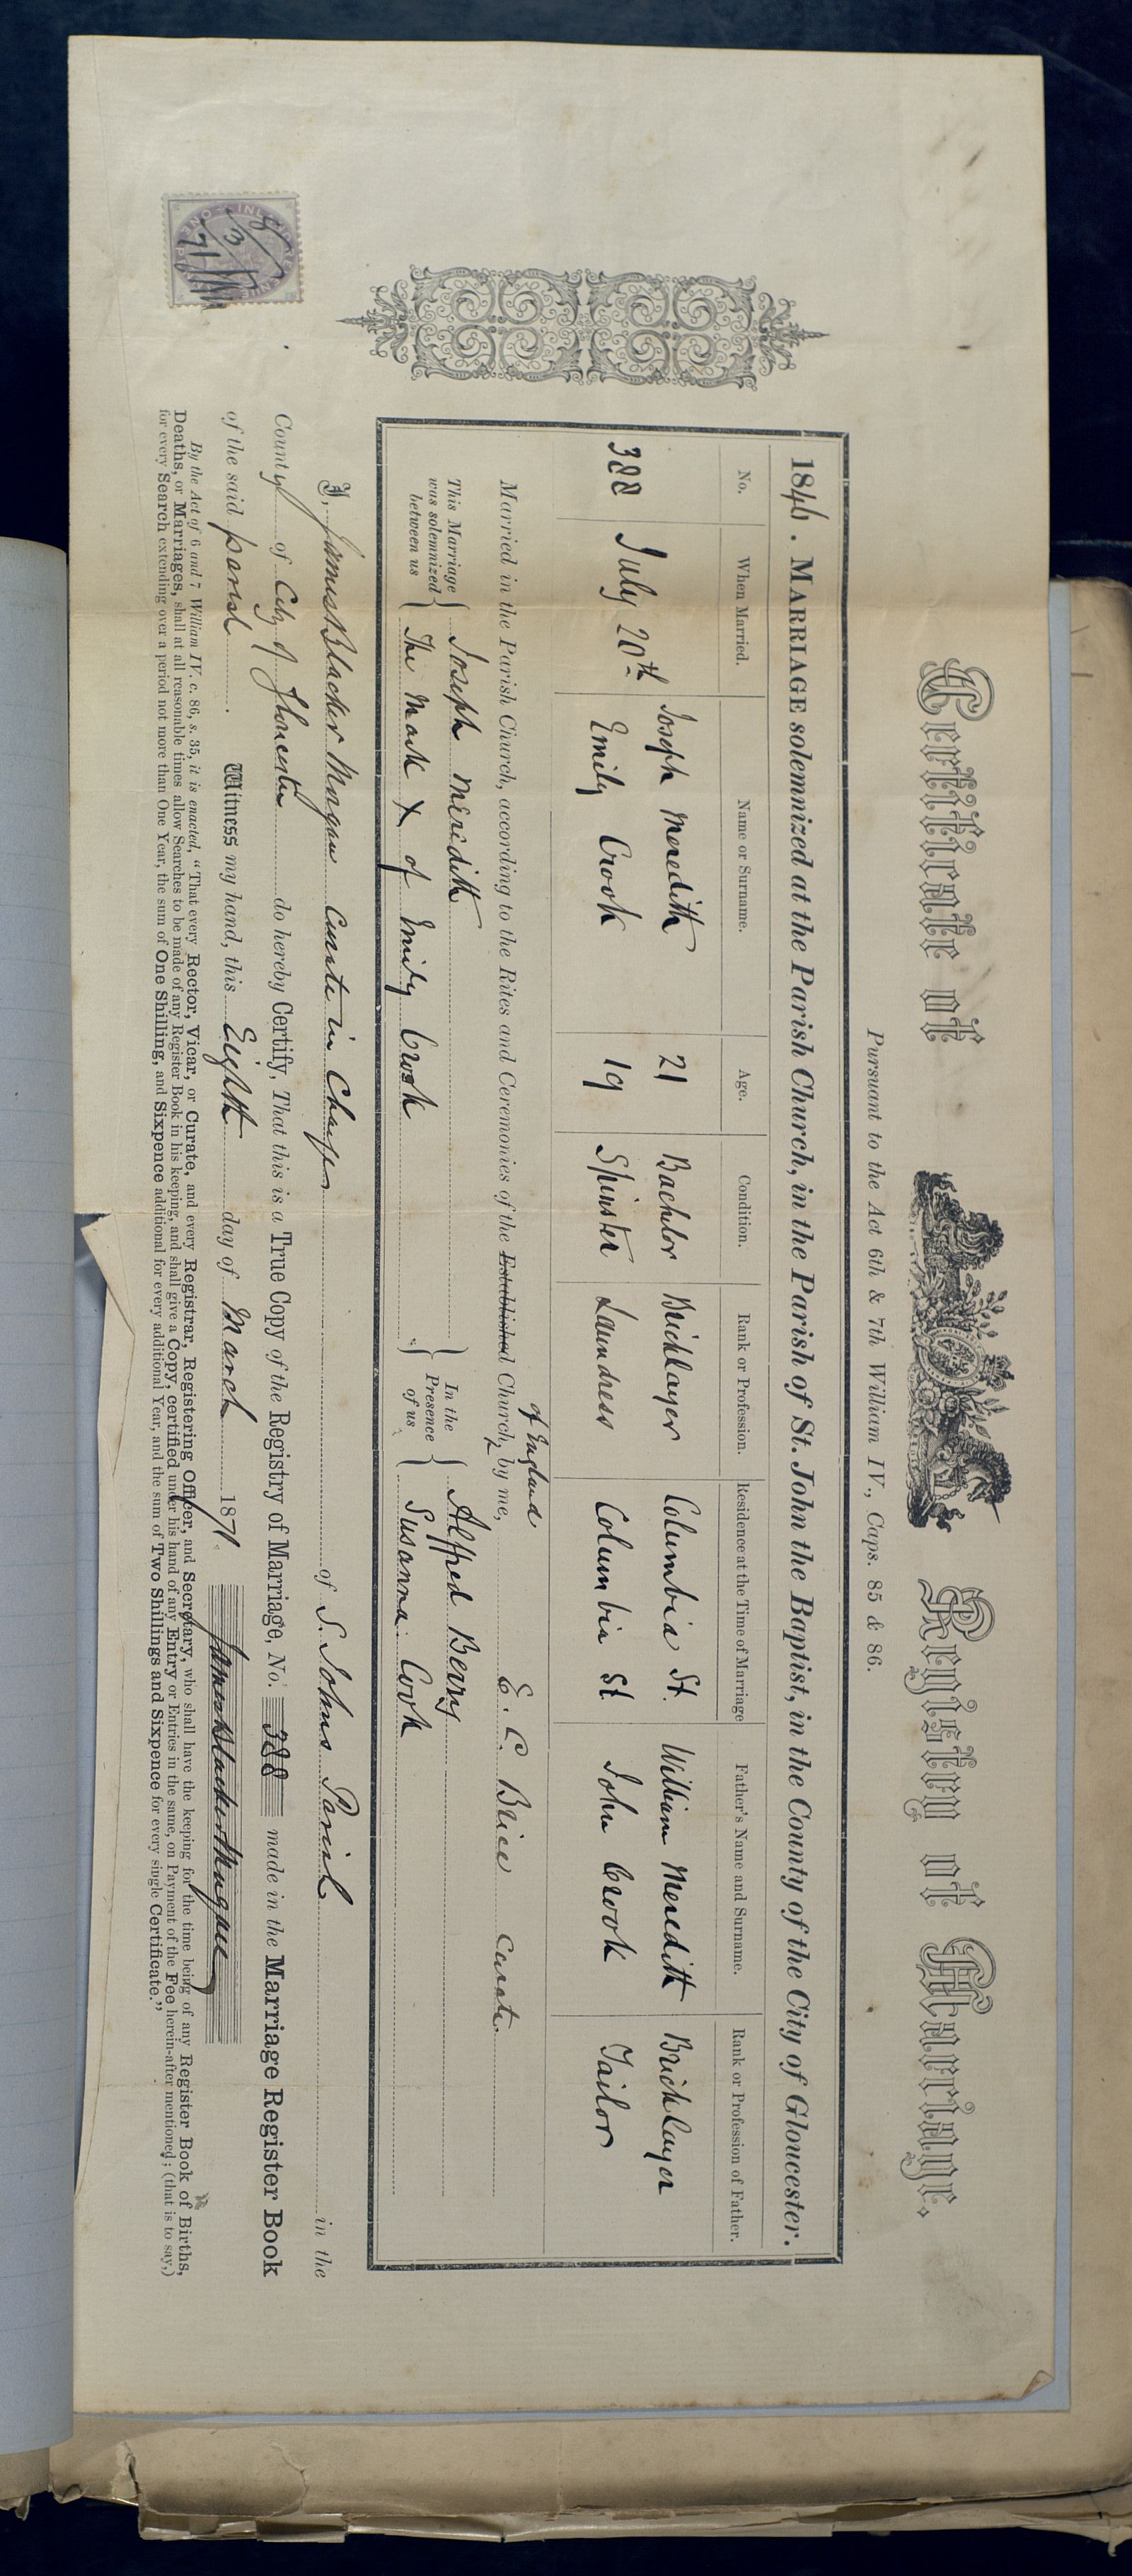 Certificate of Registry of Marriage.
Pursuant to the Act 6th & 7th William IV., Caps. 85 & 86.
1846. MARRIAGE solemnized at the Parish Church, in the Parish of St. John the Baptist, in the County of the City of Gloucester.
No. When Married. Name or Surname. Age. Condition. Rank or Profession. Residence at the Time of Marriage Father's Name and Surname. Rank or Profession of Father.
Joseph Meredith 21 Bachelor Bricklayer Columbia St. William Meredith Bricklayer
388 July 20th Emily Crook 19 Spinster Laundress Columbia St John Crook Tailor
of England
Married in the Parish Church, according to the Rites and Ceremonies of the Established Church, by me, E. C. Brice Curate.
This Marriage was solemnized between us Joseph Meredith In the Presence of us Alfred Berry
The Mark X of Emily Crook Susanna Cook
I, James Blacker Morgan Curate in Charge of S. Johns Parish in the
County of City of Gloucester do hereby Certify, That this is a True Copy of the Registry of Marriage, No. 388 made in the Marriage Register Book
of the said parish. Witness my hand, this Eighth day of March 1871. James Blacker Morgan
By the Act of 6 and 7 William IV. c. 86, s. 35, it is enacted, "That every Rector, Vicar, or Curate, and every Registrar, Registering Officer, and Secretary, who shall have the keeping for the time being of any Register Book of Births,
Deaths, or Marriages, shall at all reasonable times allow Searches to be made of any Register Book in his keeping, and shall give a Copy, certified under his hand of any Entry or Entries in the same, on Payment of the Fee herein-after mentioned; (that is to say,)
for every Search extending over a period not more than One Year, the sum of One Shilling, and Sixpence additional for every additional Year, and the sum of Two Shillings and Sixpence for every single Certificate."
8/3/71